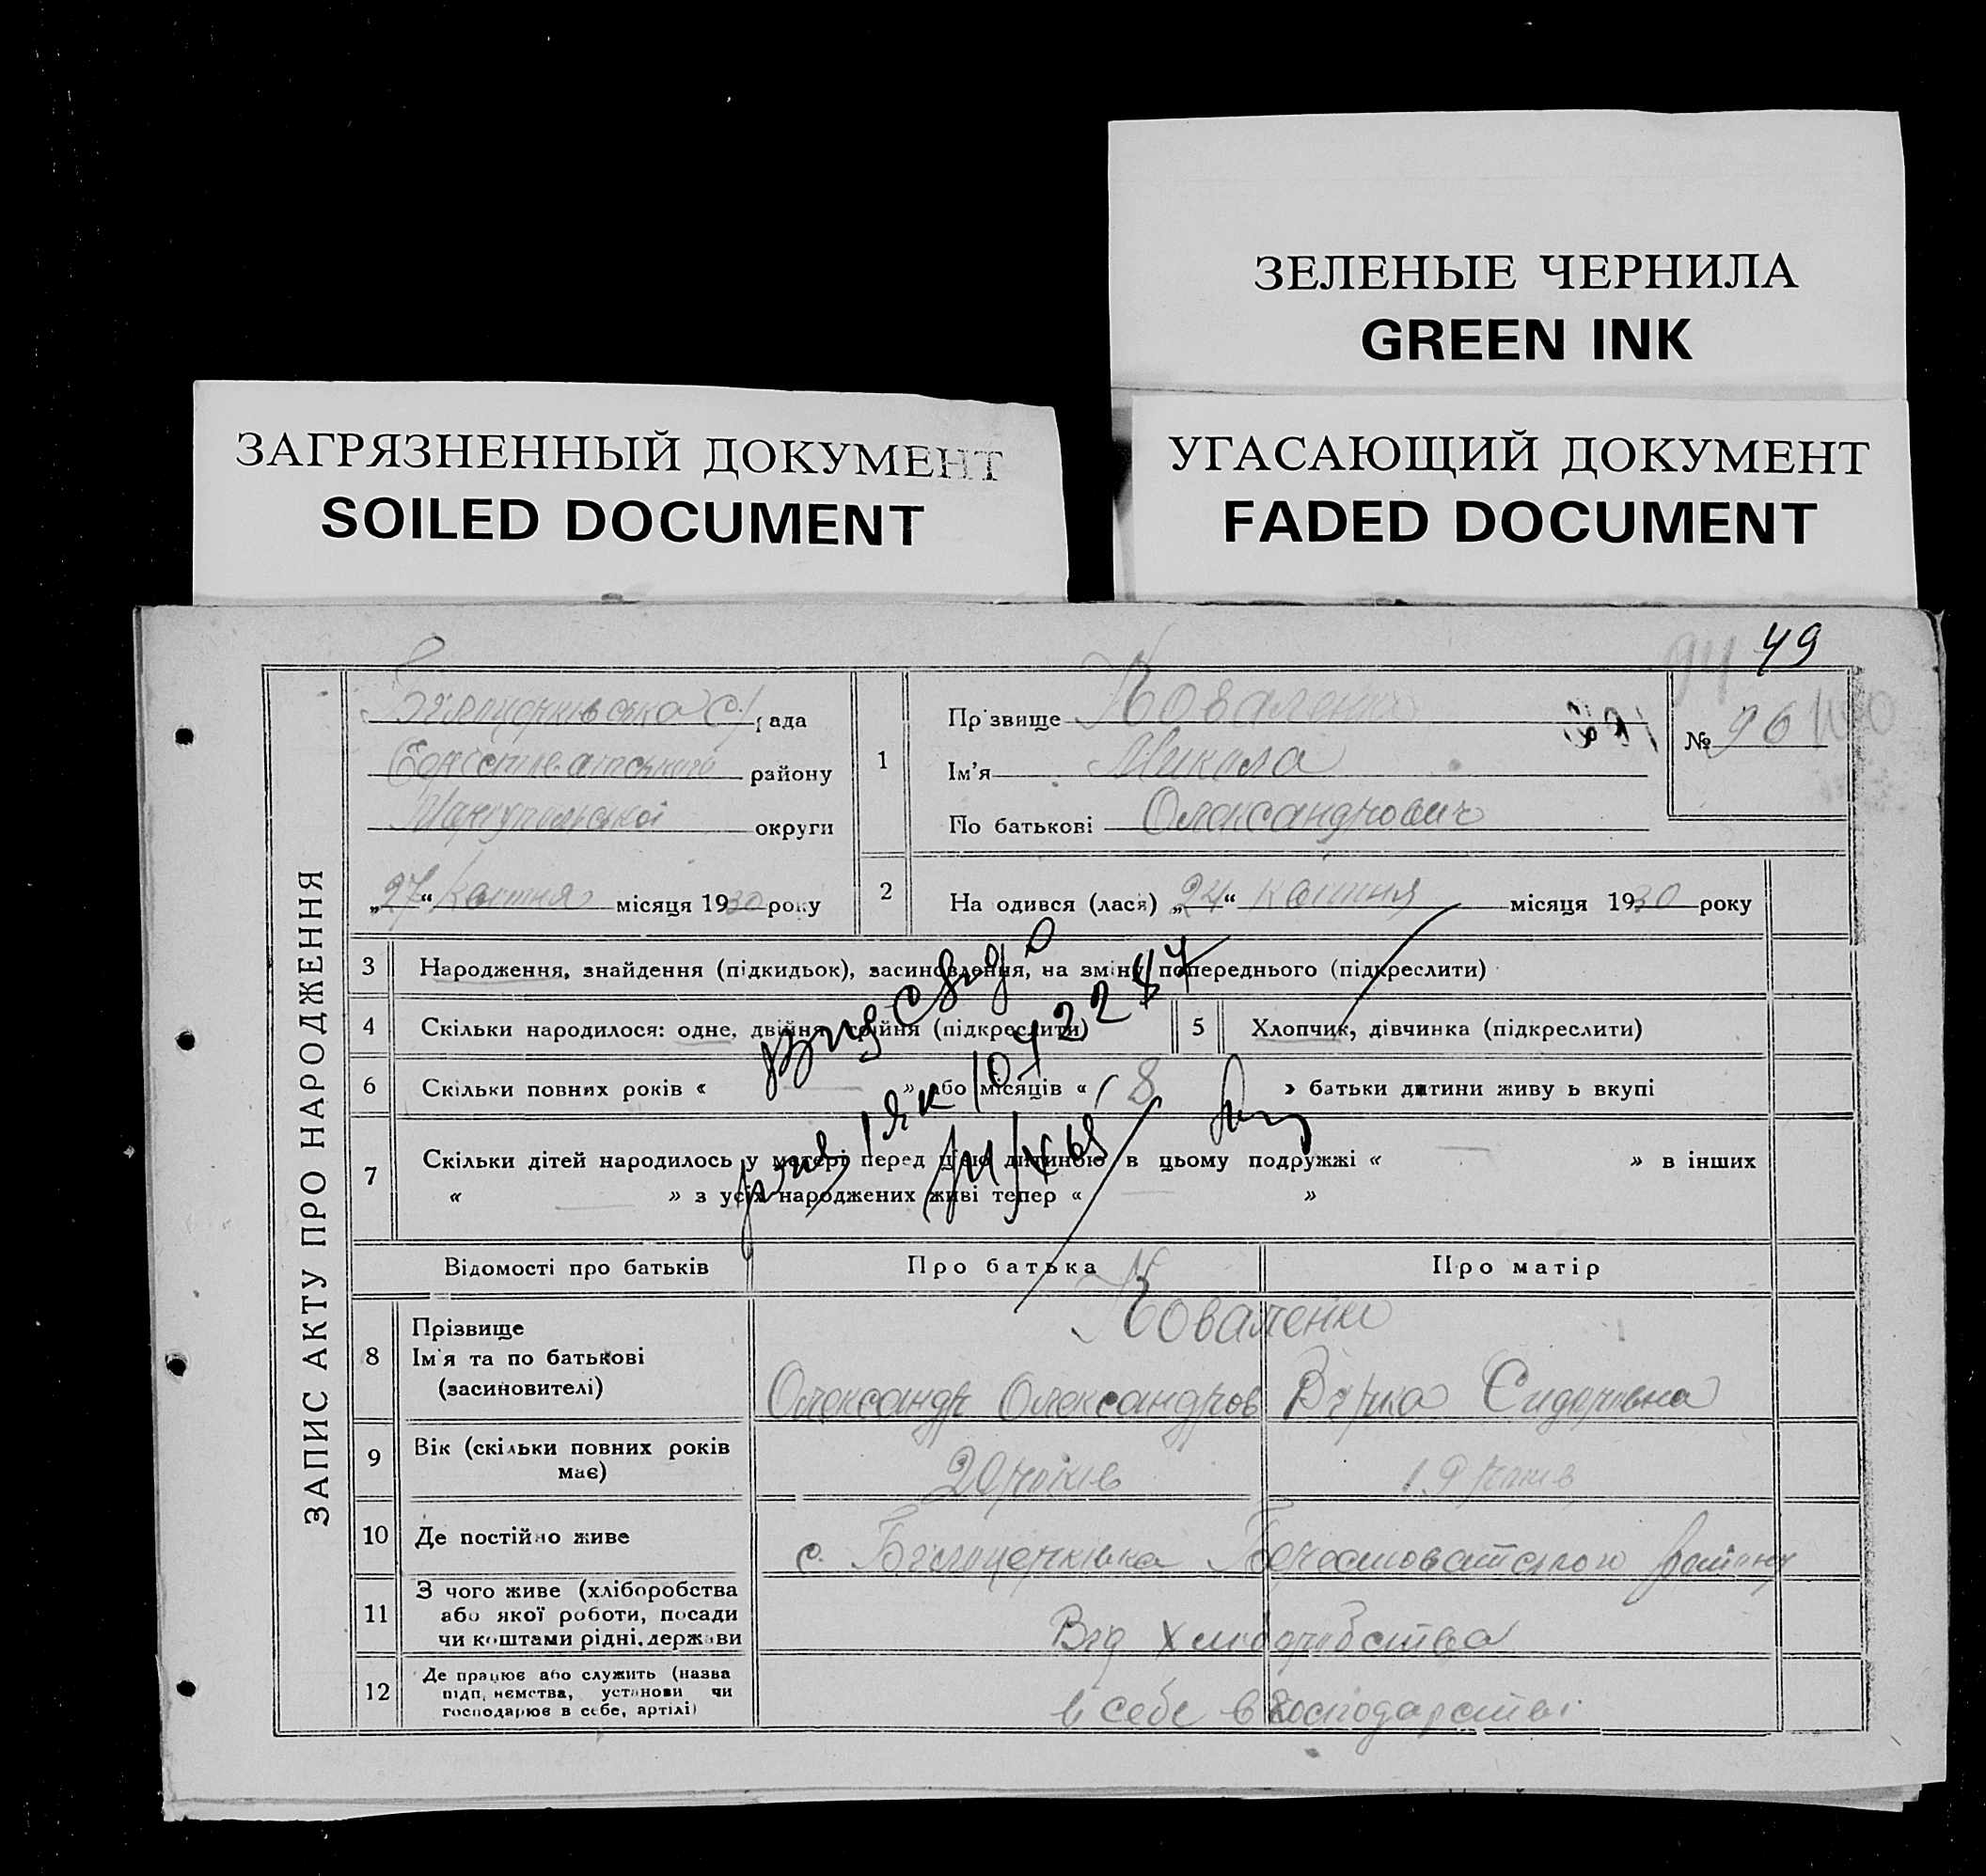 ЗЕЛЕНЫЕ ЧЕРНИЛА
GREEN INK
ЗАГРЯЗНЕННЫЙ ДОКУМЕНТ
SOILED DOCUMENT
УГАСАЮЩИЙ ДОКУМЕНТ
FADED DOCUMENT
49
94
ЗАПИС АКТУ ПРО НАРОДЖЕННЯ
рада
району
Маріупольської округи
„27“ квітня місяця 1930 року
1
Прізвище Коваленко
Ім'я Микола
По батькові Олександрович
№ 96
2 На одився (лася) „24“ квітня місяця 1930 року
3 Народження, знайдення (підкидьок), засиновлення, на зміну попереднього (підкреслити)
4 Скільки народилося: одне, двійня, трійня (підкреслити)
5 Хлопчик, дівчинка (підкреслити)
6 Скільки повних років « » або місяців « 8 » батьки дитини живу ь вкупі
7 Скільки дітей народилось у матері перед цією дитиною в цьому подружжі « » в інших
« » з усіх народжених живі тепер « »
Відомості про батьків Про батька Про матір
8 Прізвище
Ім'я та по батькові
(засиновителі)
Коваленки
Олександр Олександров Вірка Сидоровна
9 Вік (скільки повних років має)
20 років 19 років
10 Де постійно живе
с. району
11 З чого живе (хліборобства
або якої роботи, посади
чи коштами рідні, держави
Від хліборобства
12 Де працює або служить (назва
підп.иємства, установи чи
господарює в себе, артілі)
в себе в господарстві